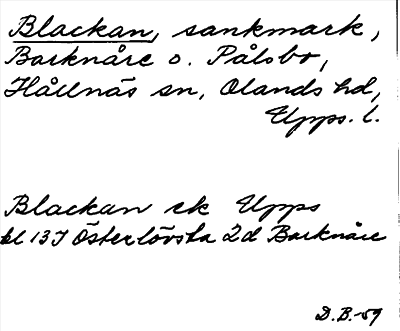 Blackan, sankmark,
Barknåre o. Pålsbo,
Hållnäs sn, Olands hd,
Upps. l.
Blackan ek Upps
bl 13I Österlövsta 2d Barknåre
D.B.-59